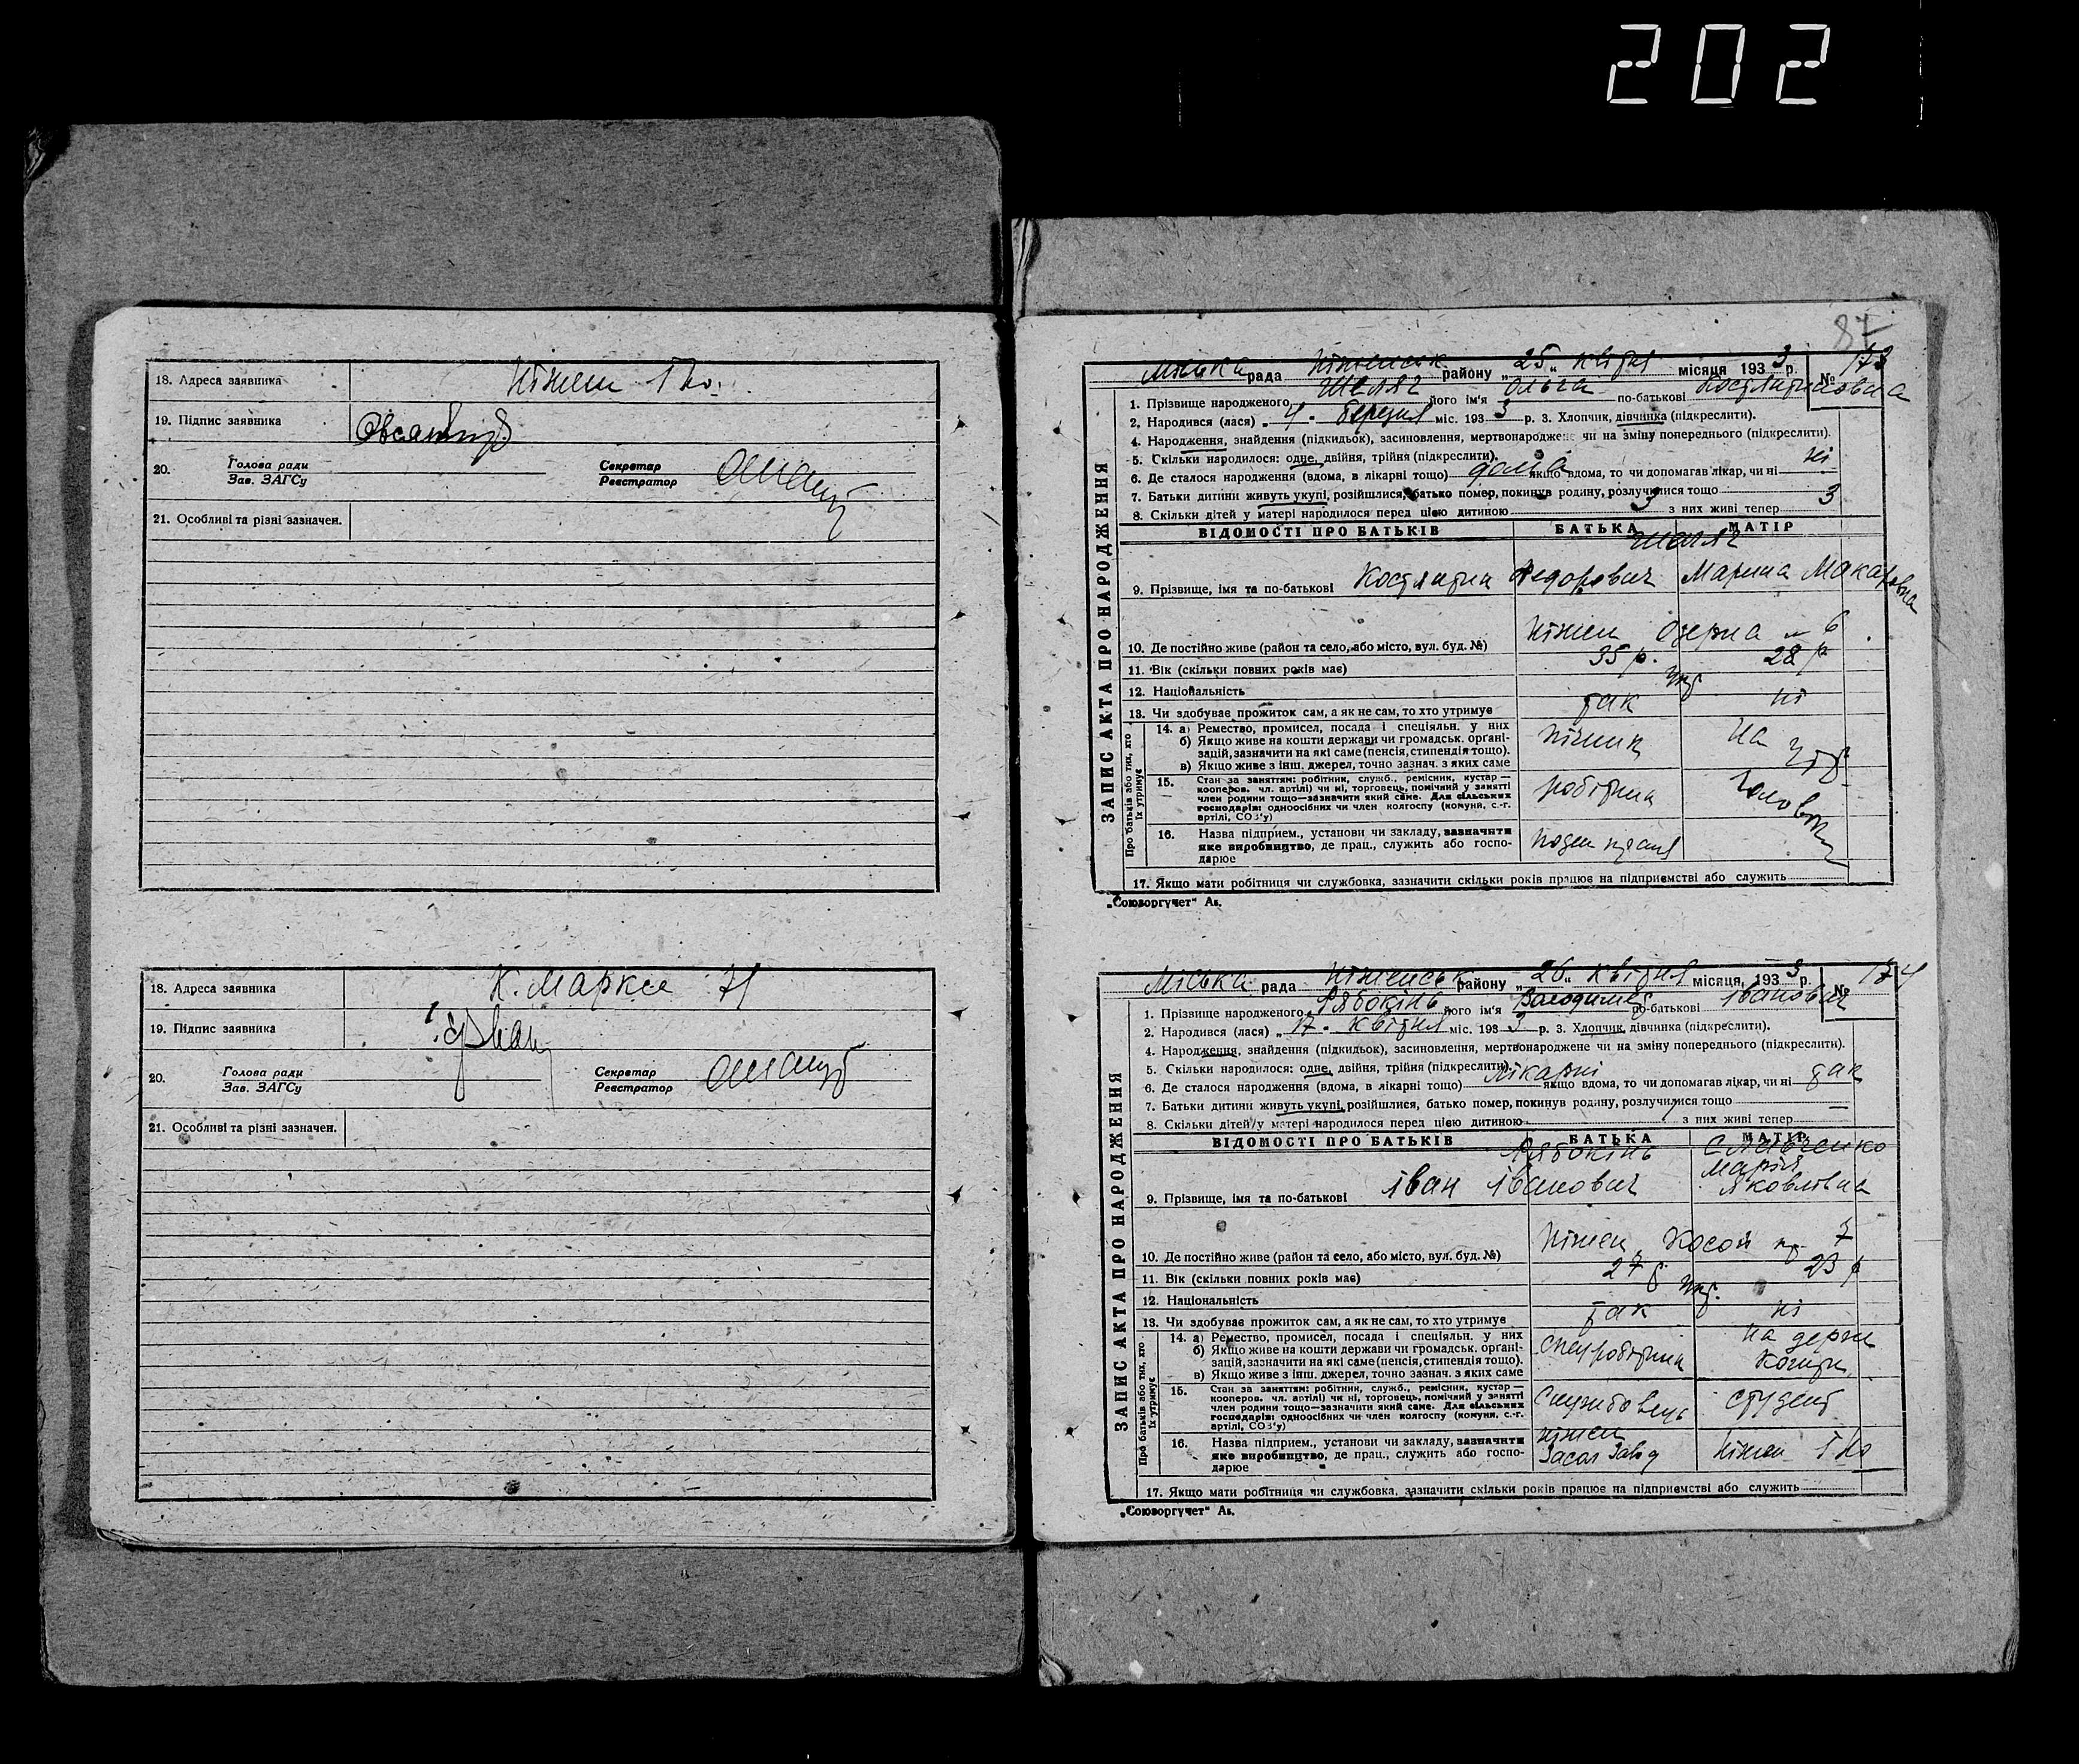 202
18. Адреса заявника Ніжен
19. Підпис заявника
20. Голова ради
Зав. ЗАГСу
Секретар
Реєстратор
21. Особливі та різні зазначен.
18. Адреса заявника К. Маркса 71
19. Підпис заявника
20. Голова ради
Зав. ЗАГСу
Секретар
Реєстратор
21. Особливі та різні зазначен.
87
Міська рада Ніженськ району „25“ квітня місяця 1933 р. № 173
ЗАПИС АКТА ПРО НАРОДЖЕННЯ
1. Прізвище народженого його ім'я Ольга по-батькові Костянтиновна
2. Народився (лася) „4“ березня міс. 1933 р. 3. Хлопчик, дівчинка (підкреслити).
4. Народження, знайдення (підкидьок), засиновлення, мертвонароджене чи на зміну попереднього (підкреслити).
5. Скільки народилося: одне, двійня, трійня (підкреслити).
6. Де сталося народження (вдома, в лікарні тощо) дома якщо вдома, то чи допомагав лікар, чи ні ні
7. Батьки дитини живуть укупі, розійшлися, батько помер, покинув родину, розлучилися тощо
8. Скільки дітей у матері народилося перед цією дитиною 3 з них живі тепер 3
ВІДОМОСТІ ПРО БАТЬКІВ БАТЬКА МАТІР
9. Прізвище, імя та по-батькові Костянтин Федорович Марина Макаровна
10. Де постійно живе (район та село, або місто, вул. буд. №) Ніжен Озерна № 6
11. Вік (скільки повних років має) 35 р. 28 р
12. Національність Укр
13. Чи здобуває прожиток сам, а як не сам, то хто утримує так ні
Про батьків або тих, хто їх утримує
14. а) Ремество, промисел, посада і спеціяльн. у них
б) Якщо живе на кошти держави чи громадськ. органі-
зацій, зазначити на які саме (пенсія, стипендія тощо).
в) Якщо живе з інш. джерел, точно зазнач. з яких саме
пічник на утр
15. Стан за заняттям: робітник, служб., ремісник, кустар —
кооперов. чл. артілі) чи ні, торговець, помічний у занятті
член родини тощо—зазначити який саме. Для сільських
господарів: одноосібних чи член колгоспу (комуни, с.-г.
артілі, СОЗ'у)
робітник
16. Назва підприєм., установи чи закладу, зазначити
яке виробництво, де прац., служить або госпо-
дарює
17. Якщо мати робітниця чи службовка, зазначити скільки років працює на підприємстві або служить
„Союзоргучет“ Ав.
Міська рада Ніженськ району „26“ квітня місяця, 1933 р. № 174
ЗАПИС АКТА ПРО НАРОДЖЕННЯ
1. Прізвище народженого Рябокінь його ім'я Володимир по-батькові Іванович
2. Народився (лася) „17“ квітня міс. 1933 р. 3. Хлопчик, дівчинка (підкреслити).
4. Народження, знайдення (підкидьок), засиновлення, мертвонароджене чи на зміну попереднього (підкреслити).
5. Скільки народилося: одне, двійня, трійня (підкреслити).
6. Де сталося народження (вдома, в лікарні тощо) лікарні якщо вдома, то чи допомагав лікар, чи ні так
7. Батьки дитини живуть укупі, розійшлися, батько помер, покинув родину, розлучилися тощо
8. Скільки дітей у матері народилося перед цією дитиною з них живі тепер —
ВІДОМОСТІ ПРО БАТЬКІВ БАТЬКА МАТІР
Рябокінь
Марія
9. Прізвище, імя та по-батькові Іван Іванович Яковлівна
10. Де постійно живе (район та село, або місто, вул. буд. №) Ніжен, Косой 7
11. Вік (скільки повних років має) 27 р. 23 р
12. Національність Укр.
13. Чи здобуває прожиток сам, а як не сам, то хто утримує так ні
Про батьків або тих, хто їх утримує
14. а) Ремество, промисел, посада і спеціяльн. у них
б) Якщо живе на кошти держави чи громадськ. органі-
зацій, зазначити на які саме (пенсія, стипендія тощо).
в) Якщо живе з інш. джерел, точно зазнач. з яких саме
на держ
15. Стан за заняттям: робітник, служб., ремісник, кустар —
кооперов. чл. артілі) чи ні, торговець, помічний у занятті
член родини тощо—зазначити який саме. Для сільських
господарів: одноосібних чи член колгоспу (комуни, с.-г.
артілі, СОЗ'у)
Службовець студент
16. Назва підприєм., установи чи закладу, зазначити
яке виробництво, де прац., служить або госпо-
дарює
Ніжен
Завод Ніжен ІНО
17. Якщо мати робітниця чи службовка, зазначити скільки років працює на підприємстві або служить
„Союзоргучет“ Ав.